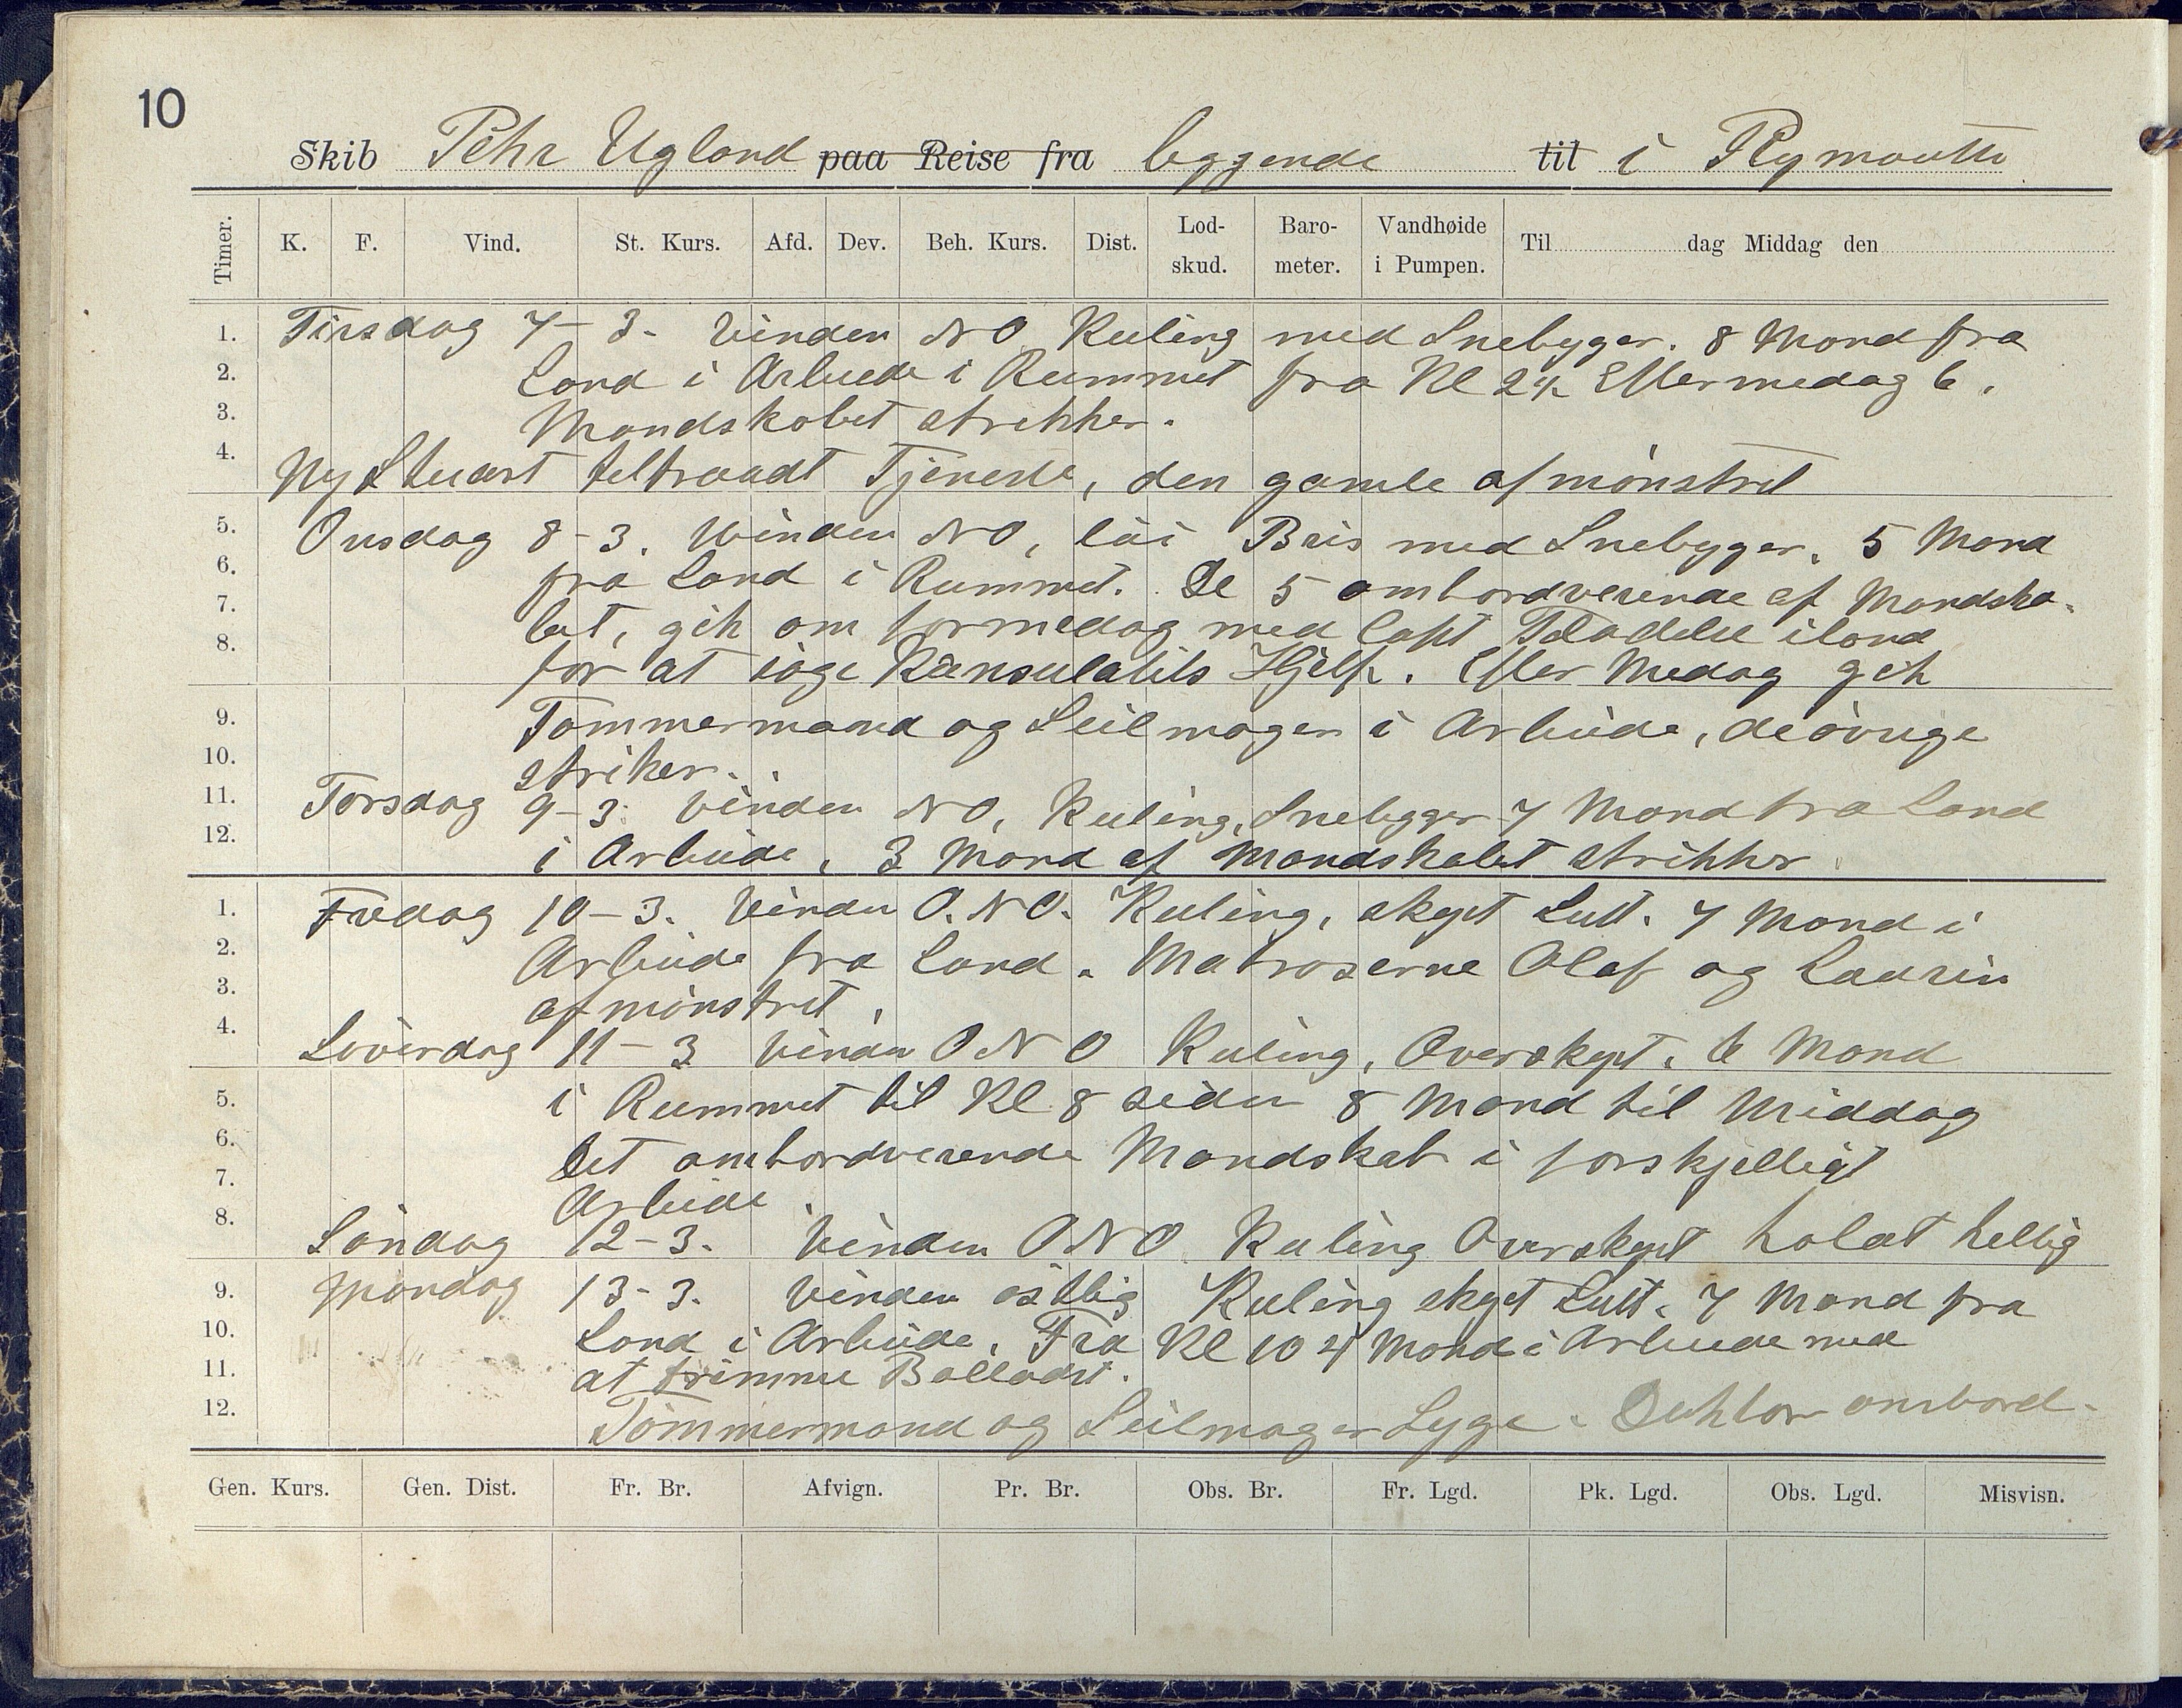 10
Skib Pehr Ugland paa Reise fra liggende til i Plymouth
Timer. K. F. Vind. St. Kurs. Afd. Dev. Beh. Kurs. Dist. Lod-skud. Baro-meter. Vandhøide i Pumpen. Til dag Middag den
1. Tirsdag 7-3. Vinden NO Kuling med Snebyger. 8 Mand fra
2. Land i Arbeide i Rummet fra Kl 2 Eftermedag 6.
3. Mandskabet strikker.
4. Ny Stuart tiltraadt Tjeneste, den gamle afmønstret
5. Onsdag 8-3. Vinden NO, løi Bris med Snebyger. 5 Mand
6. fra Land i Rummet. De 5 ombordverende af Mandska-
7. bet, gik om formedag med Capt Tilladelse iland
8. for at søge Kansulatets Hjelp. Efter Medag gik
9. Tømmermand og Seilmager i Arbeide, de øvrige
10. striker.
11. Torsdag 9-3. Vinden NO, Kuling, Snebyger 7 Mand fra Land
12. i Arbeide, 3 Mand af Mandskabet strikker.
1. Fredag 10-3. Vinden O.N.O. Kuling, skyet Luft. 7 Mand i
2. Arbeide fra Land. Matroserne Olaf og Laurin
3. afmønstret.
4. Løverdag 11-3 Vinden ONO Kuling, Overskyet. 6 Mand
5. i Rummet til Kl 8 siden 8 Mand til Middag
6. Det ombordverende Mandskab i forskjelligt
7. Arbeide.
8. Søndag 12-3. Vinden ONO Kuling Overskyet holdt hellig
9. Mandag 13-3. Vinden østlig Kuling skyet Luft. 7 Mand fra
10. Land i Arbeide. Fra Kl 10 4 Mand i Arbeide med
11. at trimme Balladst.
12. Tømmermand og Seilmager Syge. Doktor ombord.
Gen. Kurs. Gen. Dist. Fr. Br. Afvign. Pr. Br. Obs. Br. Fr. Lgd. Pk. Lgd. Obs. Lgd. Misvisn.